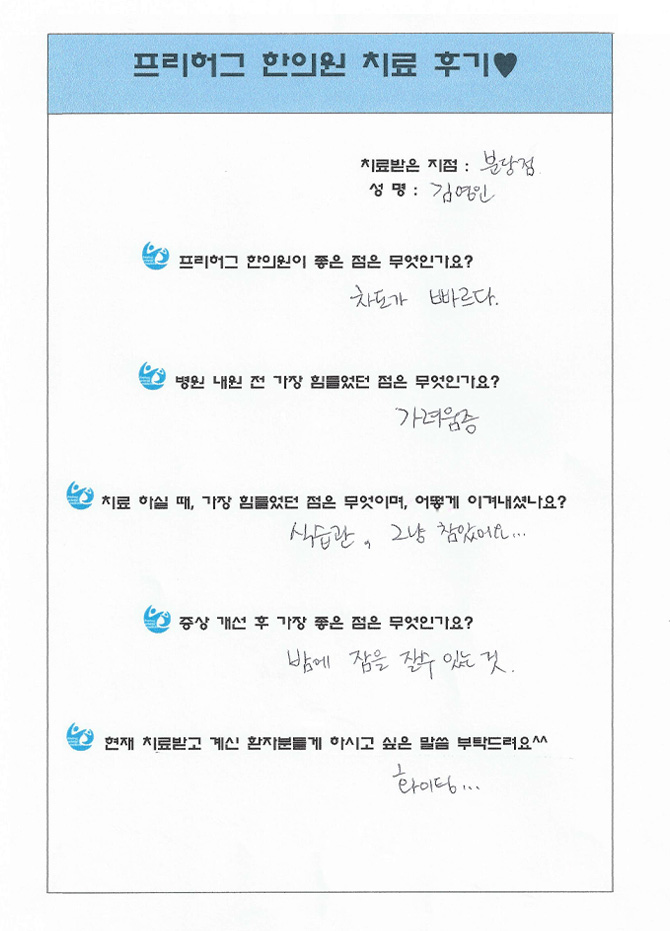 프리허그 한의원 치료 후기♥
치료받은 지점 : 분당점
성 명 : 김영인
프리허그 한의원이 좋은 점은 무엇인가요?
차도가 빠르다.
병원 내원 전 가장 힘들었던 점은 무엇인가요?
가려움증
치료 하실 때, 가장 힘들었던 점은 무엇이며, 어떻게 이겨내셨나요?
식습관, 그냥 참았어요...
증상 개선 후 가장 좋은 점은 무엇인가요?
밤에 잠을 잘수 있는 것.
현재 치료받고 계신 환자분들게 하시고 싶은 말씀 부탁드려요^^
화이팅...